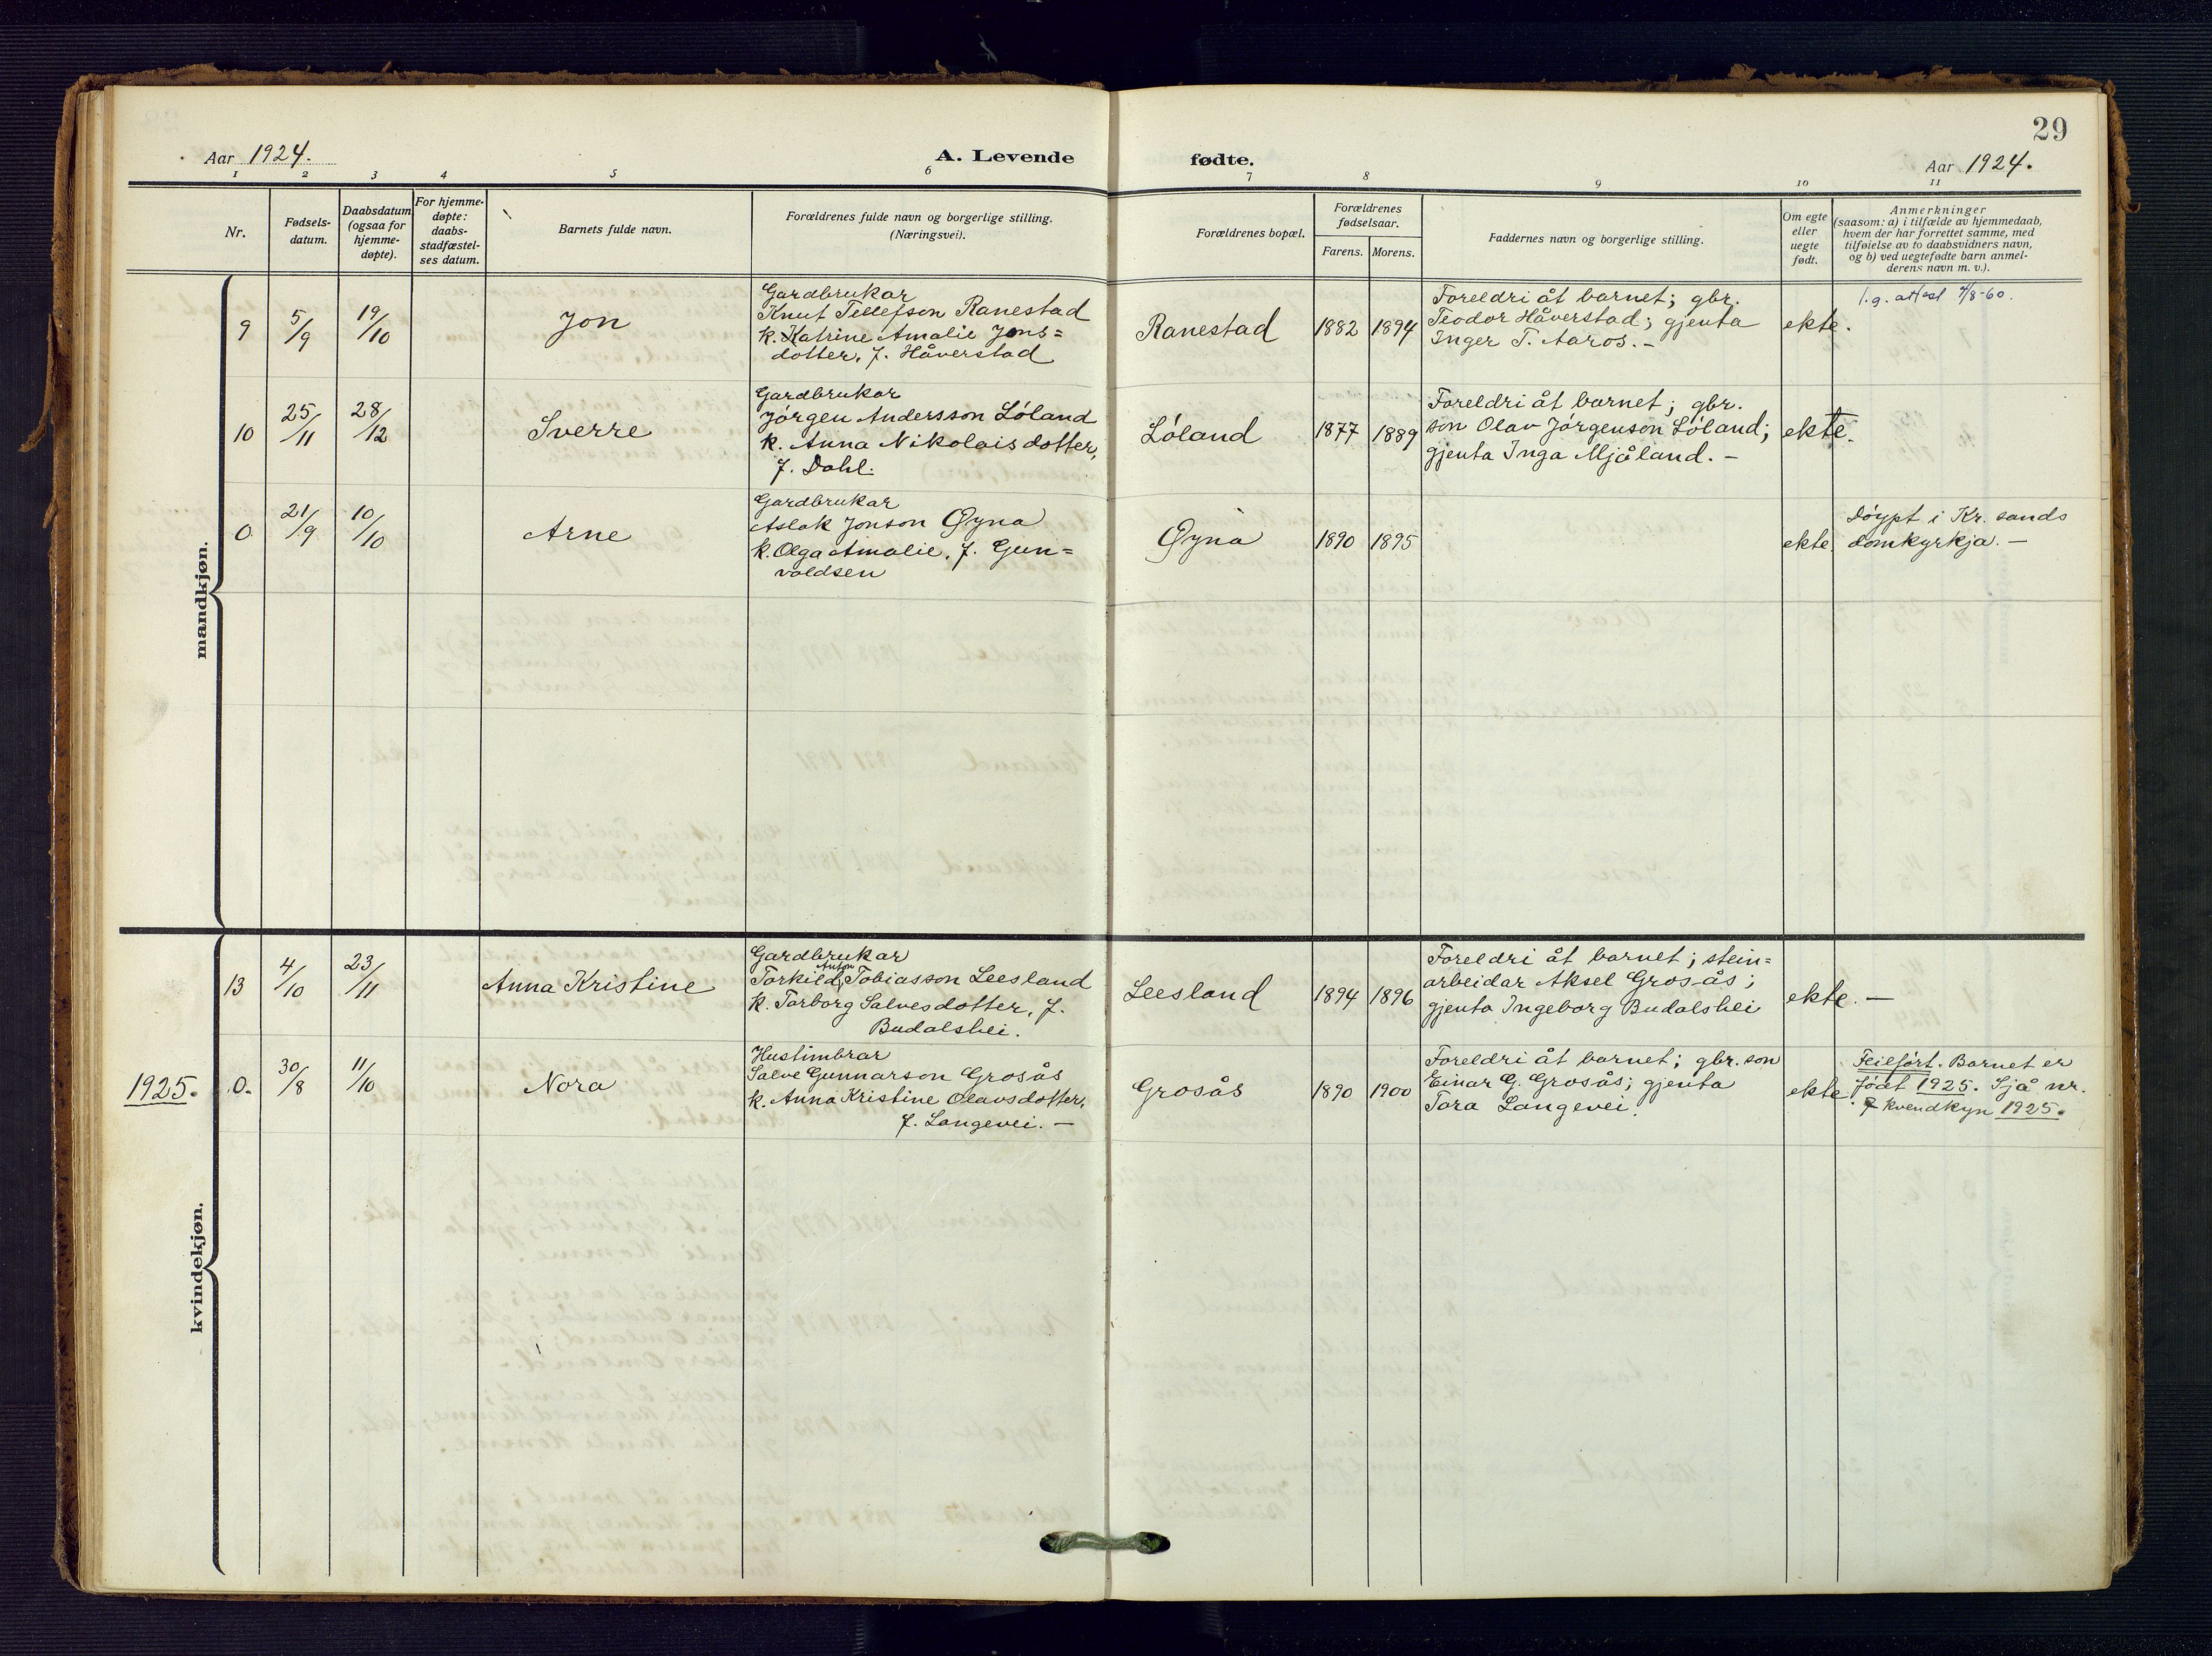 29
Aar 1924.
A. Levende fødte.
Aar 1924.
1 2 3 4 5 6 7 8 9 10 11
Nr.
Fødsels-
datum.
Daabsdatum
(ogsaa for
hjemme-
døpte).
For hjemme-
døpte:
daabs-
stadfæstel-
ses datum.
Barnets fulde navn.
Forældrenes fulde navn og borgerlige stilling.
(Næringsvei).
Forældrenes bopæl.
Forældrenes
fødselsaar.
Farens. Morens.
Faddernes navn og borgerlige stilling.
Om egte
eller
uegte
født.
Anmerkninger
(saasom: a) i tilfælde av hjemmedaab,
hvem der har forrettet samme, med
tilføielse av to daabsvidners navn,
og b) ved uegtefødte barn anmel-
derens navn m. v.).
mandkjøn.
9 5/9 19/10 Jon
Gardbrukar
Knut Tellefson Ranestad
k. Katrine Amalie Jons=
dotter, f. Håverstad
Ranestad 1882 1894
Foreldri åt barnet; gbr.
Teodor Håverstad; gjenta
Inger T. Aaros. –
ekte.
l.g. attest 4/8-60.
10 25/11 28/12 Sverre
Gardbrukar
Jørgen Andersson Løland
k. Anna Nikolaisdotter,
f. Dahl.
Løland 1877 1889
Foreldri åt barnet; gbr.
son Olav Jørgenson Løland;
gjenta Inga Mjåland. –
ekte.
0 21/9 10/10 Arne
Gardbrukar
Aslak Jonson Øyna
k. Olga Amalie, f. Gun=
valdsen
Øyna 1890 1895
ekte.
Døypt i Kr. sands
domkyrkja. –
kvindekjøn.
13 4/10 23/11 Anna Kristine
Gardbrukar
Anton
Torkild Tobiasson Leesland
k. Torborg Salvesdotter, f.
Budalshei.
Leesland 1894 1896
Foreldri åt barnet; stein=
arbeidar Aksel Gros-ås;
gjenta Ingeborg Budalshei
ekte. –
1925. 0. 30/8 11/10 Nora
Hustimbrar
Salve Gunnarson Grosås
k. Anna Kristine Olavsdotter,
f. Langevei. –
Grosås 1890 1900
Foreldri åt barnet; gbr. son
Einar G. Grosås; gjenta
Tora Langevei.
ekte.
Feilført. Barnet er
født 1925. Sjå nr.
7 kvendkyn 1925.